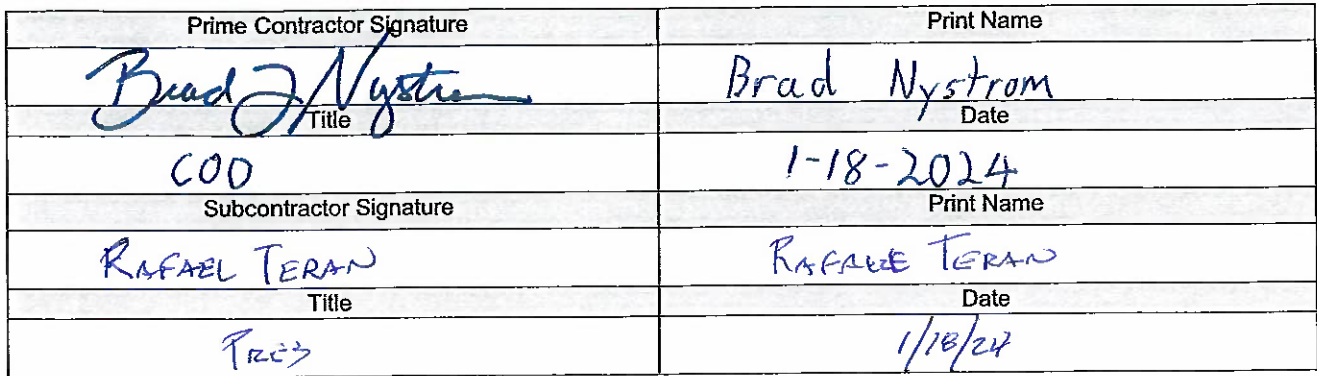 Prime Contractor Signature Print Name
Brad J Nystrom Brad Nystrom
Title Date
COO 1-18-2024
Subcontractor Signature Print Name
RAFAEL TERAN TERAN
Title Date
PRES 1/18/24